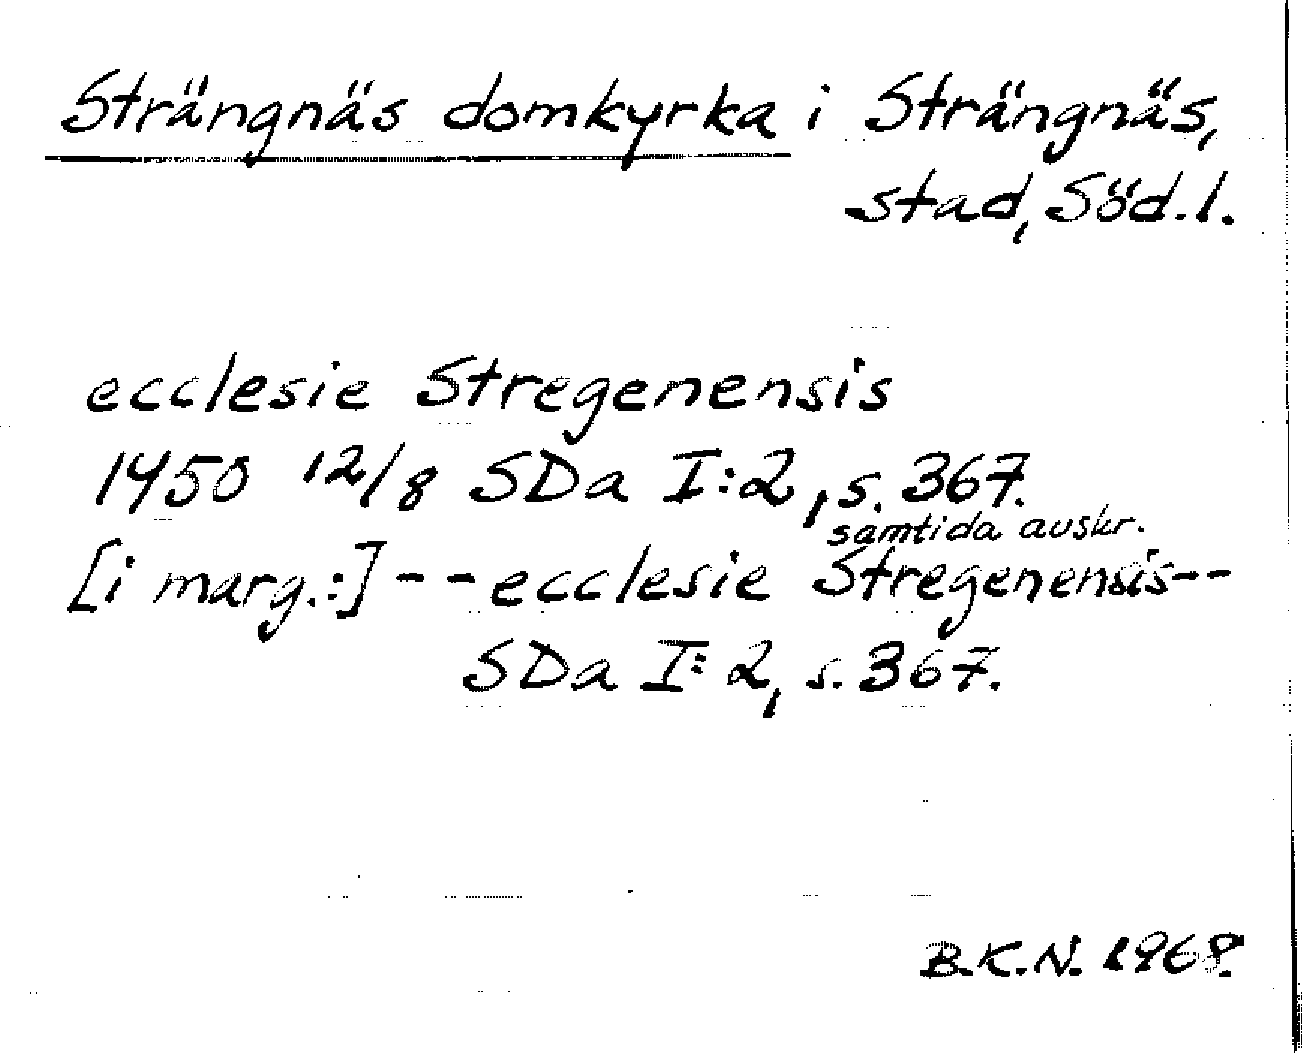 Strängnäs domkyrka i Strängnäs,
stad, Söd.l.
ecclesie Stregenensis
1450 12/8 SDa I:2, s. 367.
samtida avskr.
[i marg.:] -- ecclesie Stregenensis --
SDa I:2, s. 367.
B.K.N. 1968.